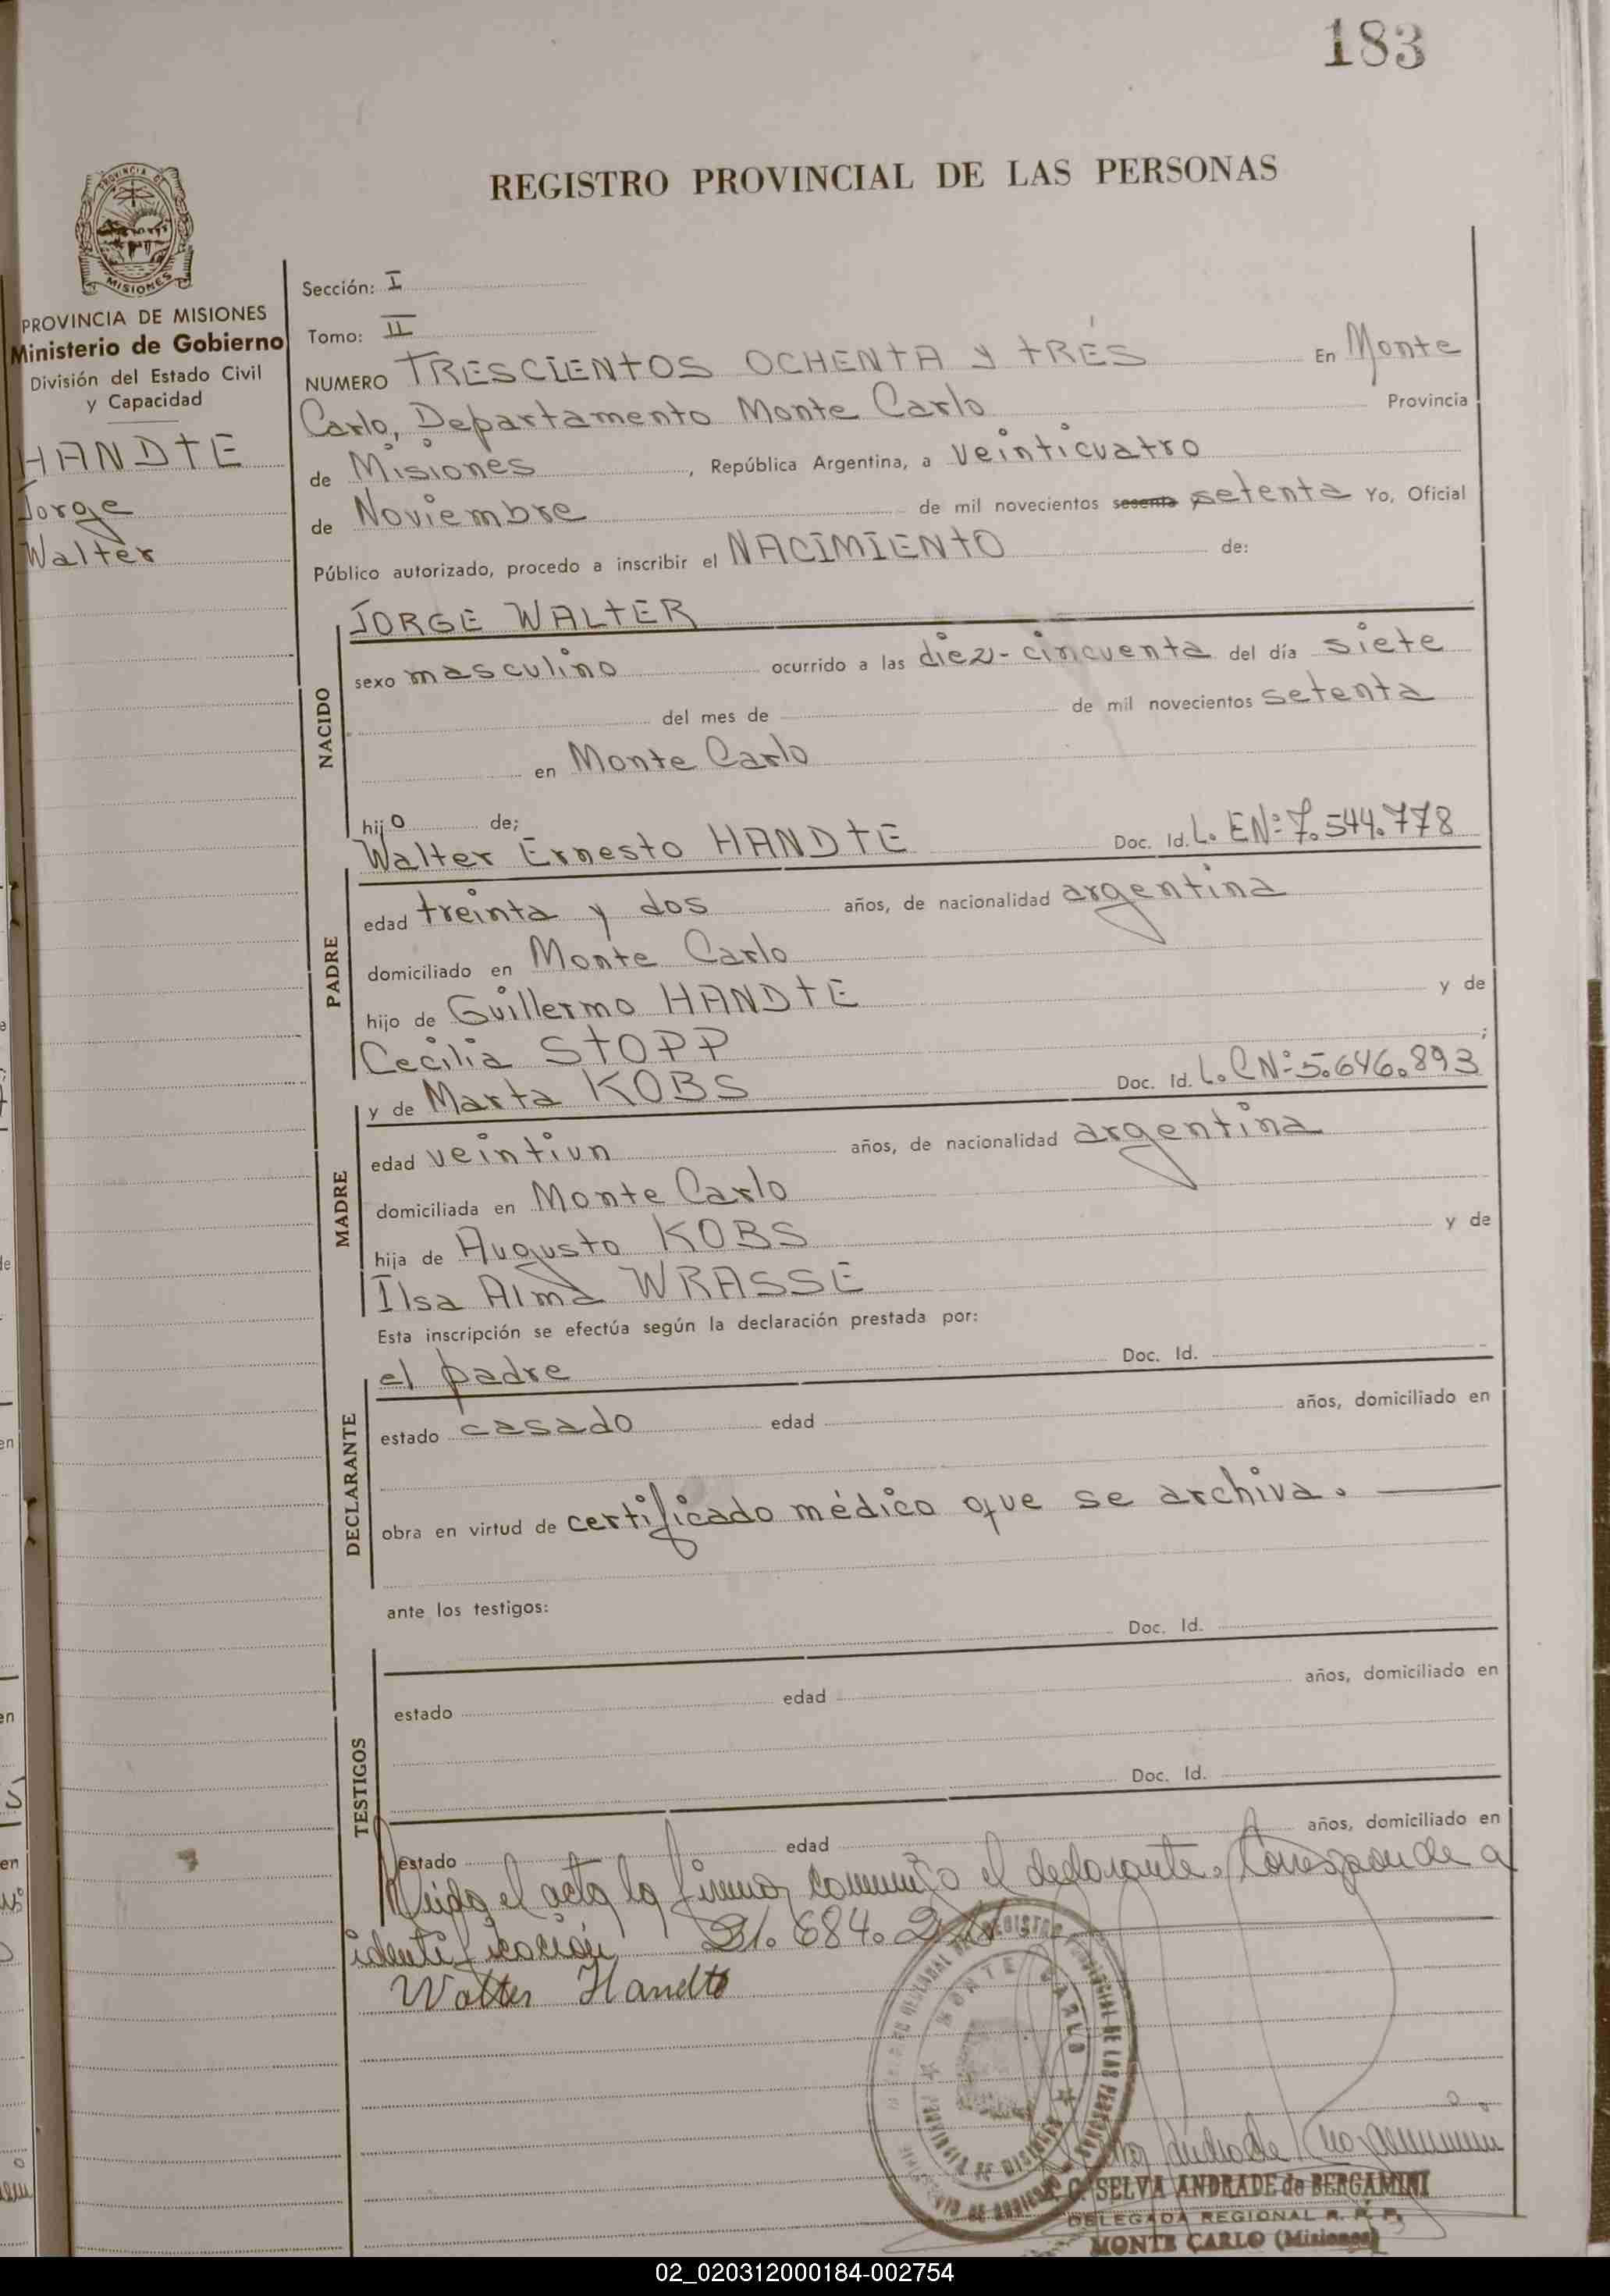 183
REGISTRO PROVINCIAL DE LAS PERSONAS
PROVINCIA DE
MISIONES
PROVINCIA DE MISIONES
Ministerio de Gobierno
División del Estado Civil
y Capacidad
HANDTE
Jorge
Walter
Sección: I
Tomo: II
NUMERO TRESCIENTOS OCHENTA y TRÉS En Monte
Carlo, Departamento Monte Carlo Provincia
de Misiones, República Argentina, a veinticuatro
de Noviembre de mil novecientos sesenta setenta Yo, Oficial
Público autorizado, procedo a inscribir el NACIMIENTO de:
NACIDO
JORGE WALTER
sexo masculino ocurrido a las diez-cincuenta del día siete
del mes de de mil novecientos setenta
en Monte Carlo
hijo de;
PADRE
Walter Ernesto HANDTE Doc. Id. L. E Nº 7.544.778
edad treinta y dos años, de nacionalidad argentina
domiciliado en Monte Carlo
hijo de Guillermo HANDTE y de
Cecilia STOPP ;
MADRE
y de Marta KOBS Doc. Id. L. C Nº 5.646.893
edad veintiun años, de nacionalidad argentina
domiciliada en Monte Carlo
hija de Augusto KOBS y de
Ilsa Alma WRASSE
Esta inscripción se efectúa según la declaración prestada por:
DECLARANTE
el padre Doc. Id.
estado casado edad años, domiciliado en
obra en virtud de certificado médico que se archiva.
ante los testigos:
TESTIGOS
Doc. Id.
estado edad años, domiciliado en
Doc. Id.
estado edad años, domiciliado en
Leida el acta la firma conmigo el declarante. Corresponde a
identificación 21.684.
Walter Handte
MONTE CARLO
PROVINCIA DE MISIONES
C. SELVA ANDRADE de BERGAMINI
DELEGADA REGIONAL R. P. P.
MONTE CARLO (Misiones)
02_020312000184-002754